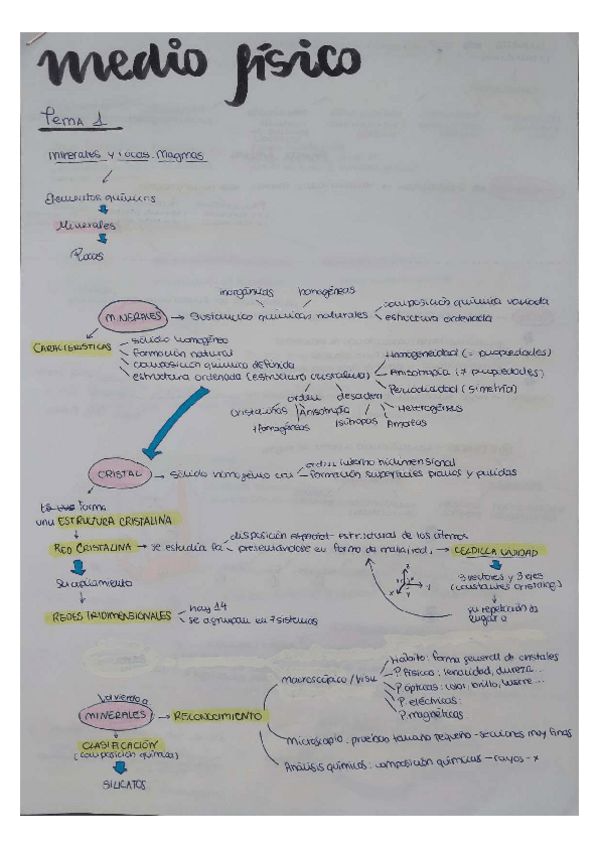 medio físico
Tema 1
minerales y rocas. Magmas
Elementos químicos
Minerales
Rocas
inorgánicas homogéneas
MINERALES → Sustancias químicas naturales
composición química variada
estructura ordenada
CARACTERÍSTICAS
sólido homogéneo
formación natural
composición química definida
estructura ordenada (estructura cristalina)
Homogeneidad (= propiedades)
Anisotropía (≠ propiedades)
Periodicidad (simetría)
orden desorden
Cristalinos Anisotropía Heterogéneos
Homogéneos Isótropos Amorfos
CRISTAL → sólido homogéneo con
orden interno tridimensional
formación superficies planas y pulidas
forma
una ESTRUCTURA CRISTALINA
RED CRISTALINA → se estudia la
disposición estructural de los átomos
presentándose en forma de malla/red, → CELDILLA UNIDAD
Su apilamiento
3 vectores y 3 ejes
(constantes cristalog.)
su repetición da
lugar a
REDES TRIDIMENSIONALES
hay 14
se agrupan en 7 sistemas
MINERALES → RECONOCIMIENTO
macroscópico / visu
Hábito: forma general de cristales
P. físicas: tenacidad, dureza...
P. ópticas: color, brillo, lustre...
P. eléctricas:
P. magnéticas
Microscopio: pruebas tamaño pequeño - secciones muy finas
Análisis químicos: composición químicas - rayos - x
CLASIFICACIÓN
(composición química)
SILICATOS